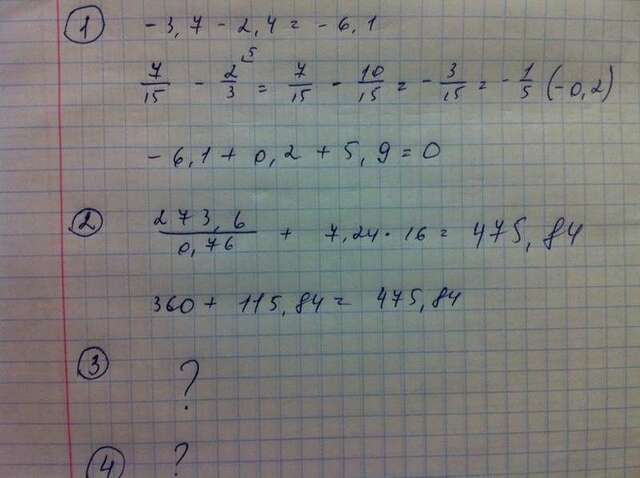 1 - 3,7 - 2,4 = - 6,1
7/15 - 2/3 ⁵ = 7/15 - 10/15 = - 3/15 = - 1/5 (-0,2)
- 6,1 + 0,2 + 5,9 = 0
2 273,6/0,76 + 7,24 · 16 = 475,84
360 + 115,84 = 475,84
3 ?
4 ?